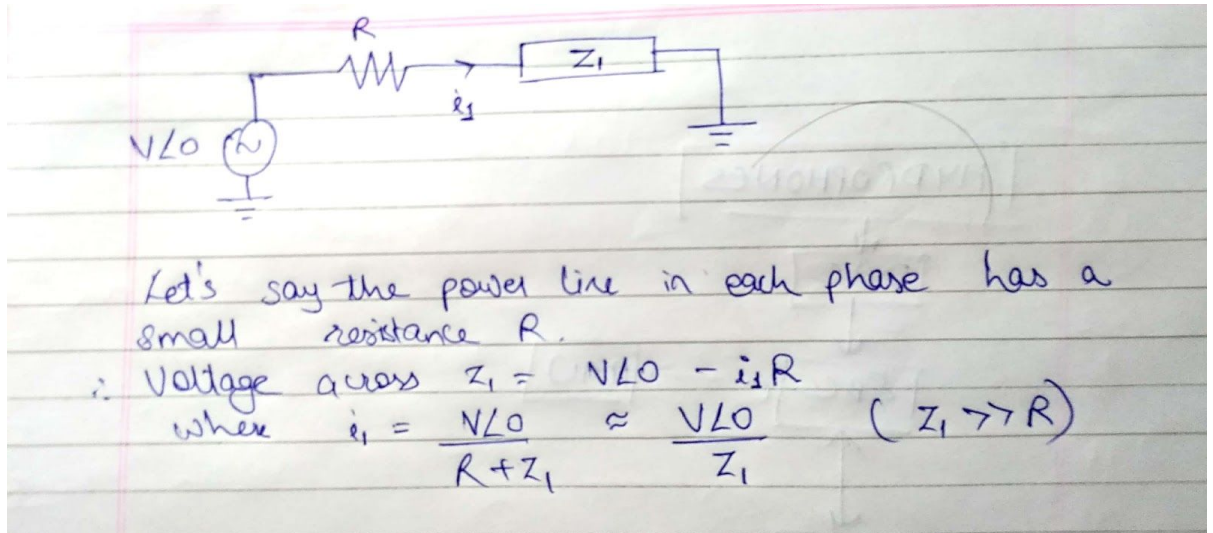 R
Z₁
i₁
V∠0
Let's say the power line in each phase has a
small resistance R.
∴ Voltage across Z₁ = V∠0 - i₁R
where i₁ = V∠0 / R+Z₁ ≈ V∠0 / Z₁ (Z₁ >> R)